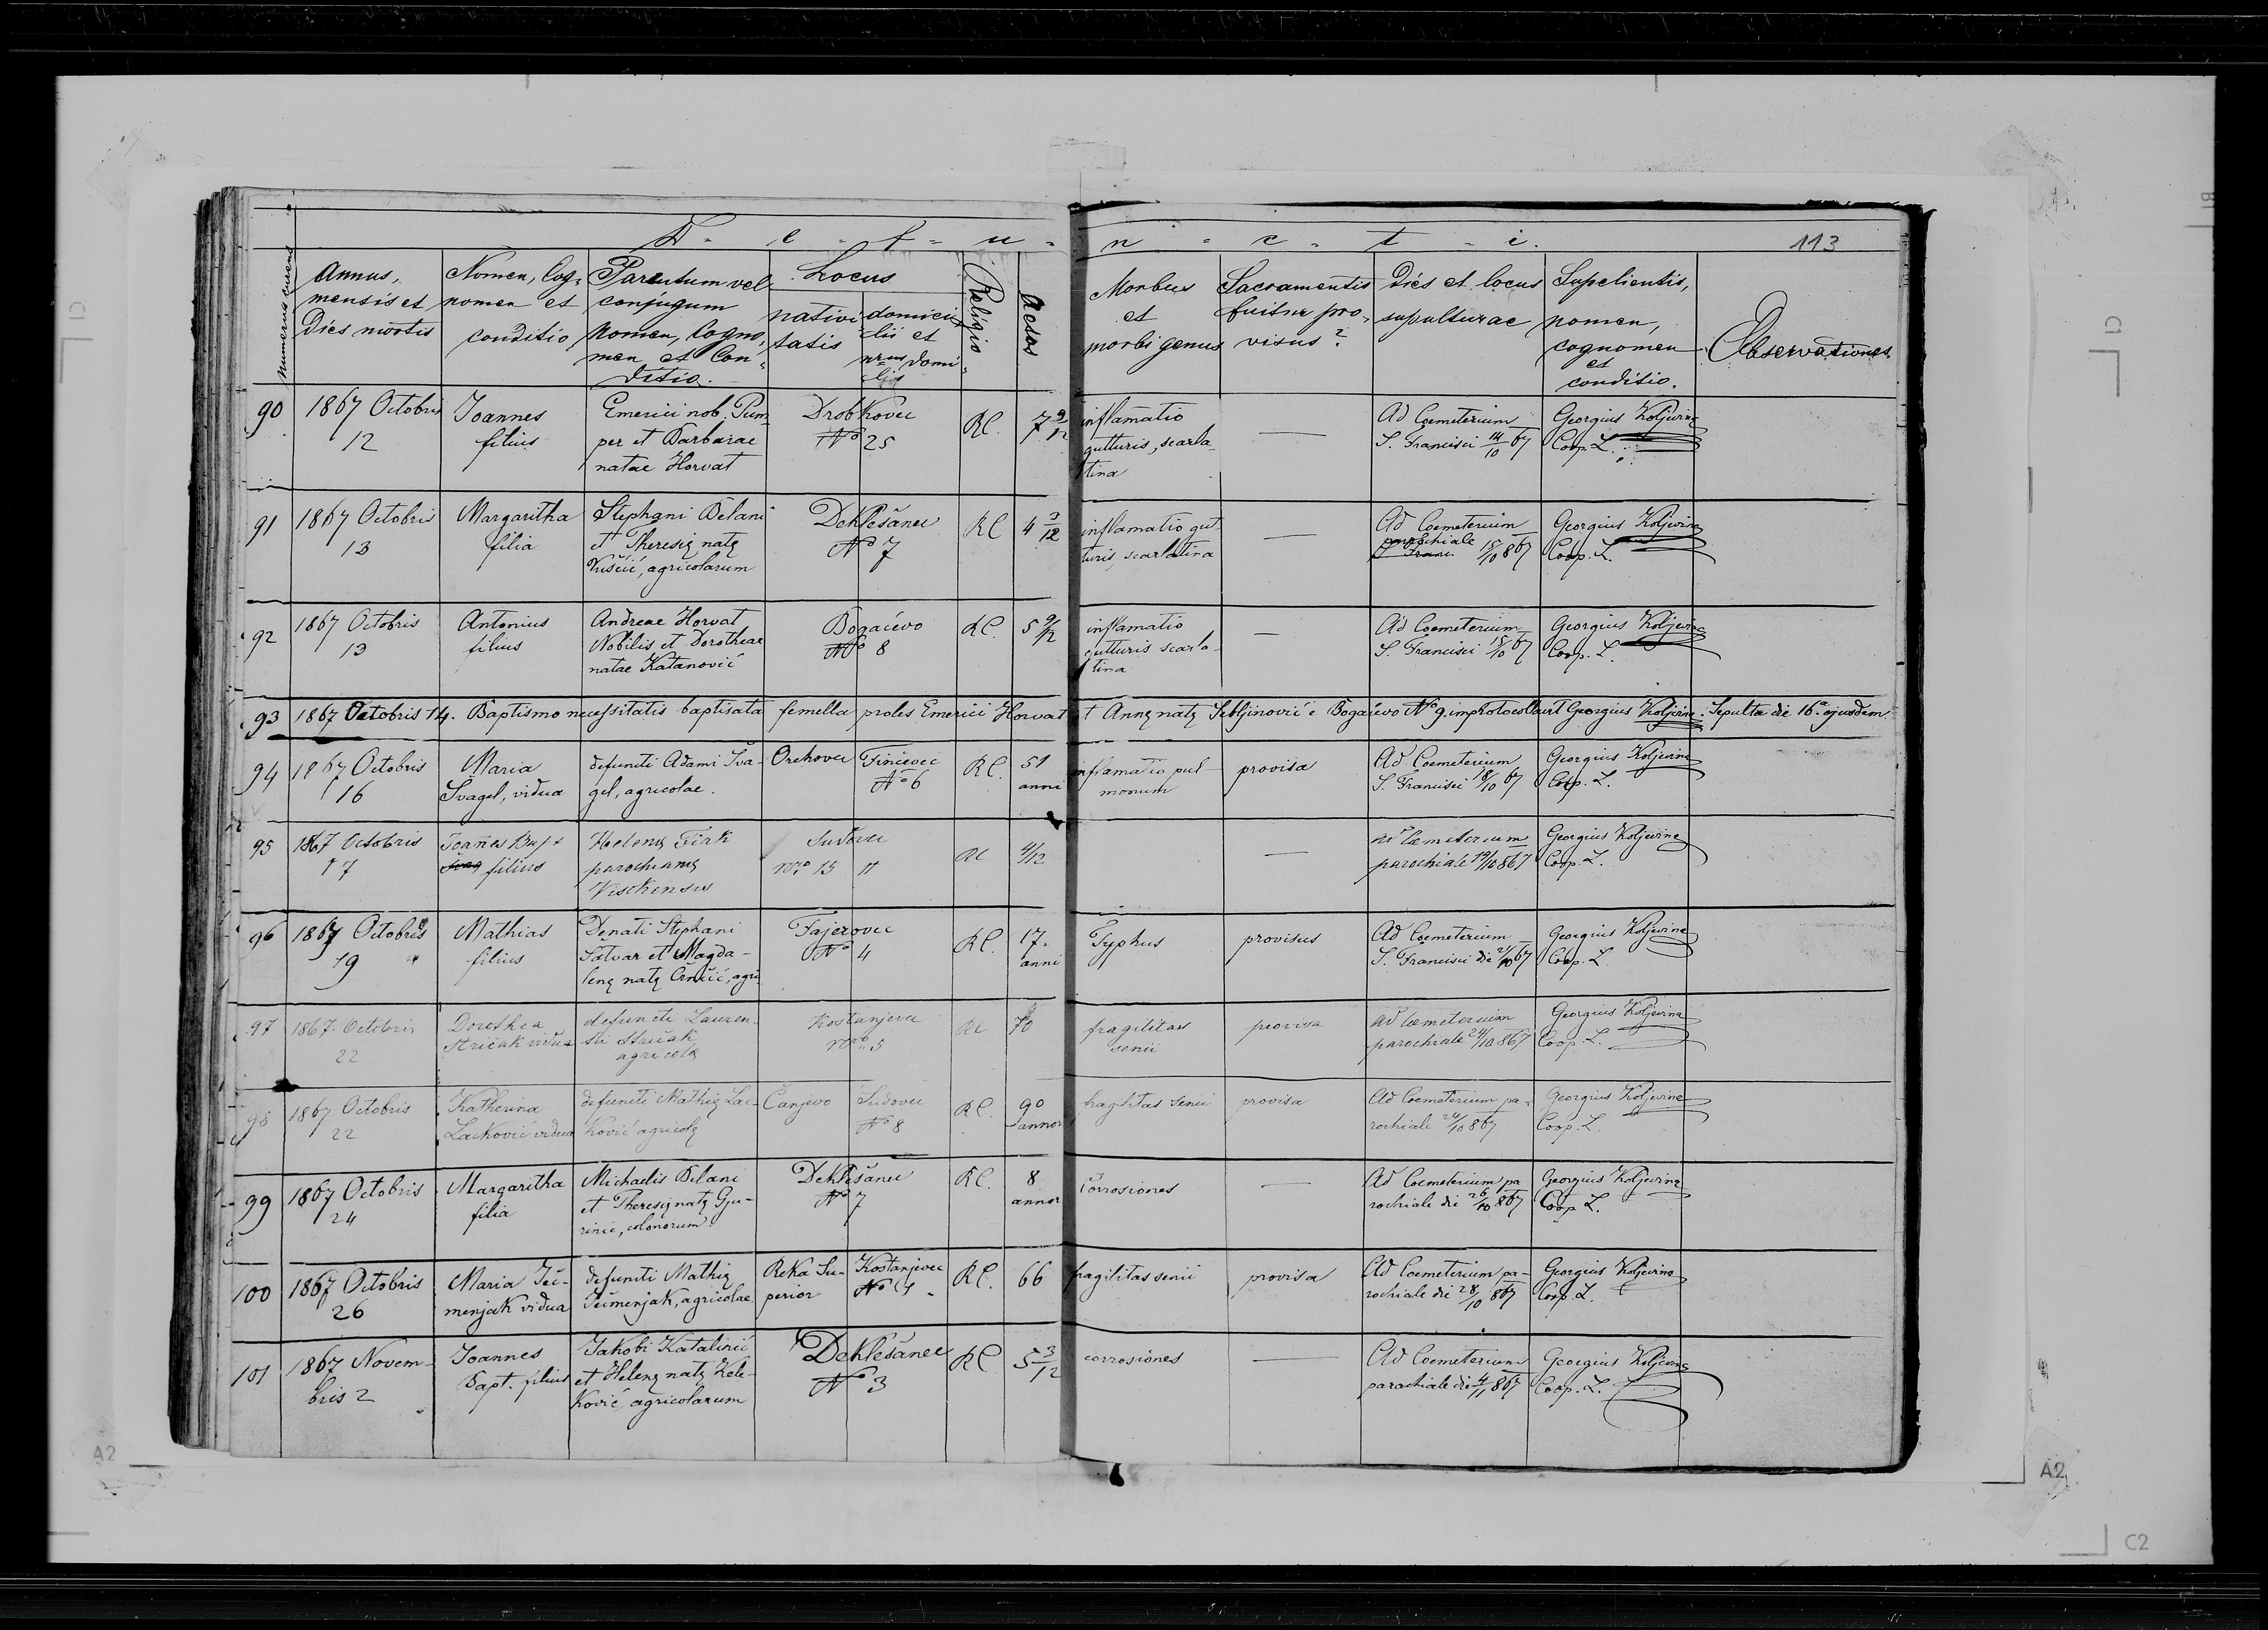 D - e - f - u - n - c - t - i.
113
Numerus currens
Annus, mensis et Dies mortis
Nomen, Cognomen et conditio
Parentum vel conjugum Nomen, Cogno, men et Con= ditio.
Locus
nativi tatis
domici lii et nrus domi= lis
Religio
Aetas
Morbus et morbi genus
Sacramentis fuitne pro, visus?
Dies et locus sepulturae
Sepelientis, nomen, cognomen et conditio.
Observationes
90
1867 Octobris 12
Joannes filius
Emerici nob. Pum= per et Barbarae natae Horvat
Drobkovec No 25
RC.
7 9/12
inflamatio gutturis, scarla- tina
—
Ad Coemeterium S. Francisci 14/10 67
Georgius Koljevina Coop. L.
91
1867 Octobris 13
Margaritha filia
Stephani Belani et Theresię natę Kuščić, agricolarum
Deklešanec No 7
RC
4 3/12
inflamatio gut turis, scarlatina
—
Ad Coemeterium parochiale 15/10 867
Georgius Koljevina Coop. L.
92
1867 Octobris 13
Antonius filius
Andreae Horvat Nobilis et Dorotheae natae Katanović
Bogačevo No 8
RC.
5 9/12
inflamatio gutturis scarla- tina
—
Ad Coemeterium S. Francisci 15/10 67
Georgius Koljevina Coop. L.
93
1867 Octobris 14. Baptismo necessitatis baptisata femella proles Emerici Horvat et Annę natę Sebljinović e Bogačevo No 9. improtocollavit Georgius Koljevina. Sepulta die 16a ejusdem.
94
1867 Octobris 16
Maria Švagel, vidua
defuncti Adami Šva- gel, agricolae.
Orehovec
Finčevec No 6
RC.
51 anni
inflamatio pul- monum
provisa
Ad Coemeterium S. Francisci 18/10 67
Georgius Koljevina Coop. L.
95
1867 Octobris 17
Joannes Bapt filius
Helenę Firk parochianę Visokensis
Sudovec nro 15
RC
4/12
—
Ad Coemeterium parochiale 19/10 867
Georgius Koljevina Coop. L.
96
1867 Octobris 19
Mathias filius
Denati Stephani Šatvar et Magda- lenę natę Črnčić, agri
Fajerovec No 4
RC.
17. anni
Typhus
provisus
Ad Coemeterium S. Francisci die 21/10 67
Georgius Koljevina Coop. L.
97
1867. Octobris 22
Dorothea Stričak vidua
defuncti Lauren- tii Stričak agricolę
Kostanjevec nro 5
RC
70
fragilitas senii
provisa
Ad Coemeterium parochiale 24/10 867
Georgius Koljevina Coop. L.
98
1867 Octobris 22
Katherina Lacković vidua
defuncti Mathię Lac- ković agricolę
Čanjevo
Sudovec No 8
RC.
90 annor
fragilitas senii
provisa
Ad Coemeterium pa- rochiale 24/10 867
Georgius Koljevina Coop. L.
99
1867 Octobris 24
Margaritha filia
Michaelis Belani et Theresię natę Gju- rinić, colonorum
Deklešanec No 7
RC.
8 annor
corrosiones
—
Ad Coemeterium pa rochiale die 26/10 867
Georgius Koljevina Coop L.
100
1867 Octobris 26
Maria Ječ- menjak vidua
defuncti Mathię Ječmenjak, agricolae
Reka Su- perior
Kostanjevec No 4
RC.
66
fragilitas senii
provisa
Ad Coemeterium pa- rochiale die 28/10 867
Georgius Koljevina Coop. L.
101
1867 Novem- bris 2
Joannes Bapt. filius
Jakobi Katalinić et Helenę natę Kele- ković agricolarum
Deklešanec No 3
RC
5 3/12
corrosiones
—
Ad Coemeterium parochiale die 4/11 867
Georgius Koljevina Coop. L.
A2
A2
C1
C1
C2
B1